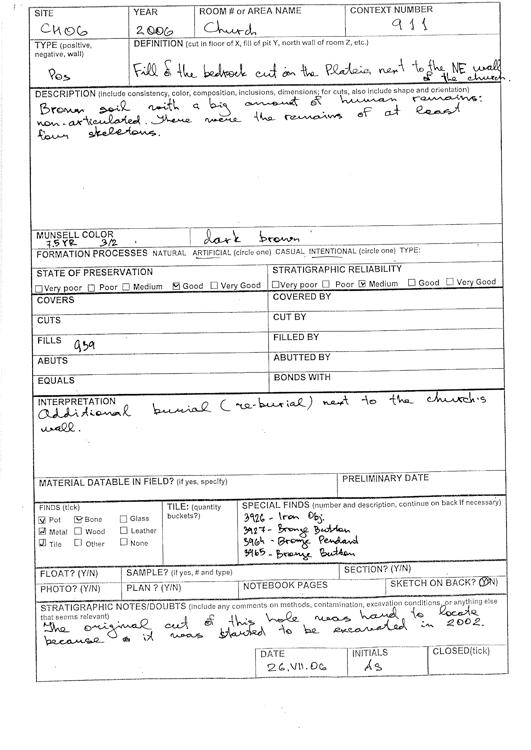 SITE YEAR ROOM # or AREA NAME CONTEXT NUMBER
CH06 2006 Church 911
TYPE (positive, negative, wall) DEFINITION (cut in floor of X, fill of pit Y, north wall of room Z, etc.)
Pos Fill of the bedrock cut on the Plateia, next to the NE wall
of the church.
DESCRIPTION (include consistency, color, composition, inclusions, dimensions; for cuts, also include shape and orientation)
Brown soil with a big amount of human remains:
non-articulated. There were the remains of at least
four skeletons.
MUNSELL COLOR
7.5 YR 3/2 dark brown
FORMATION PROCESSES NATURAL ARTIFICIAL (circle one) CASUAL INTENTIONAL (circle one) TYPE:
STATE OF PRESERVATION STRATIGRAPHIC RELIABILITY
Very poor Poor Medium Good Very Good Very poor Poor Medium Good Very Good
COVERS COVERED BY
CUTS CUT BY
FILLS 939 FILLED BY
ABUTS ABUTTED BY
EQUALS BONDS WITH
INTERPRETATION
Additional burial (re-burial) next to the church's
wall.
MATERIAL DATABLE IN FIELD? (if yes, specify) PRELIMINARY DATE
FINDS (tick) TILE: (quantity buckets?) SPECIAL FINDS (number and description, continue on back if necessary)
Pot Bone Glass 3926 - Iron Obj.
Metal Wood Leather 3927 - Bronze Button
Tile Other None 3964 - Bronze Pendand
3965 - Bronze Button
FLOAT? (Y/N) SAMPLE? (if yes, # and type) SECTION? (Y/N)
PHOTO? (Y/N) PLAN ? (Y/N) NOTEBOOK PAGES SKETCH ON BACK? (Y/N)
STRATIGRAPHIC NOTES/DOUBTS (include any comments on methods, contamination, excavation conditions, or anything else
that seems relevant)
The original cut of this hole was hand to locate
because it was started to be excavated in 2002.
DATE INITIALS CLOSED(tick)
26.VII.06 AS